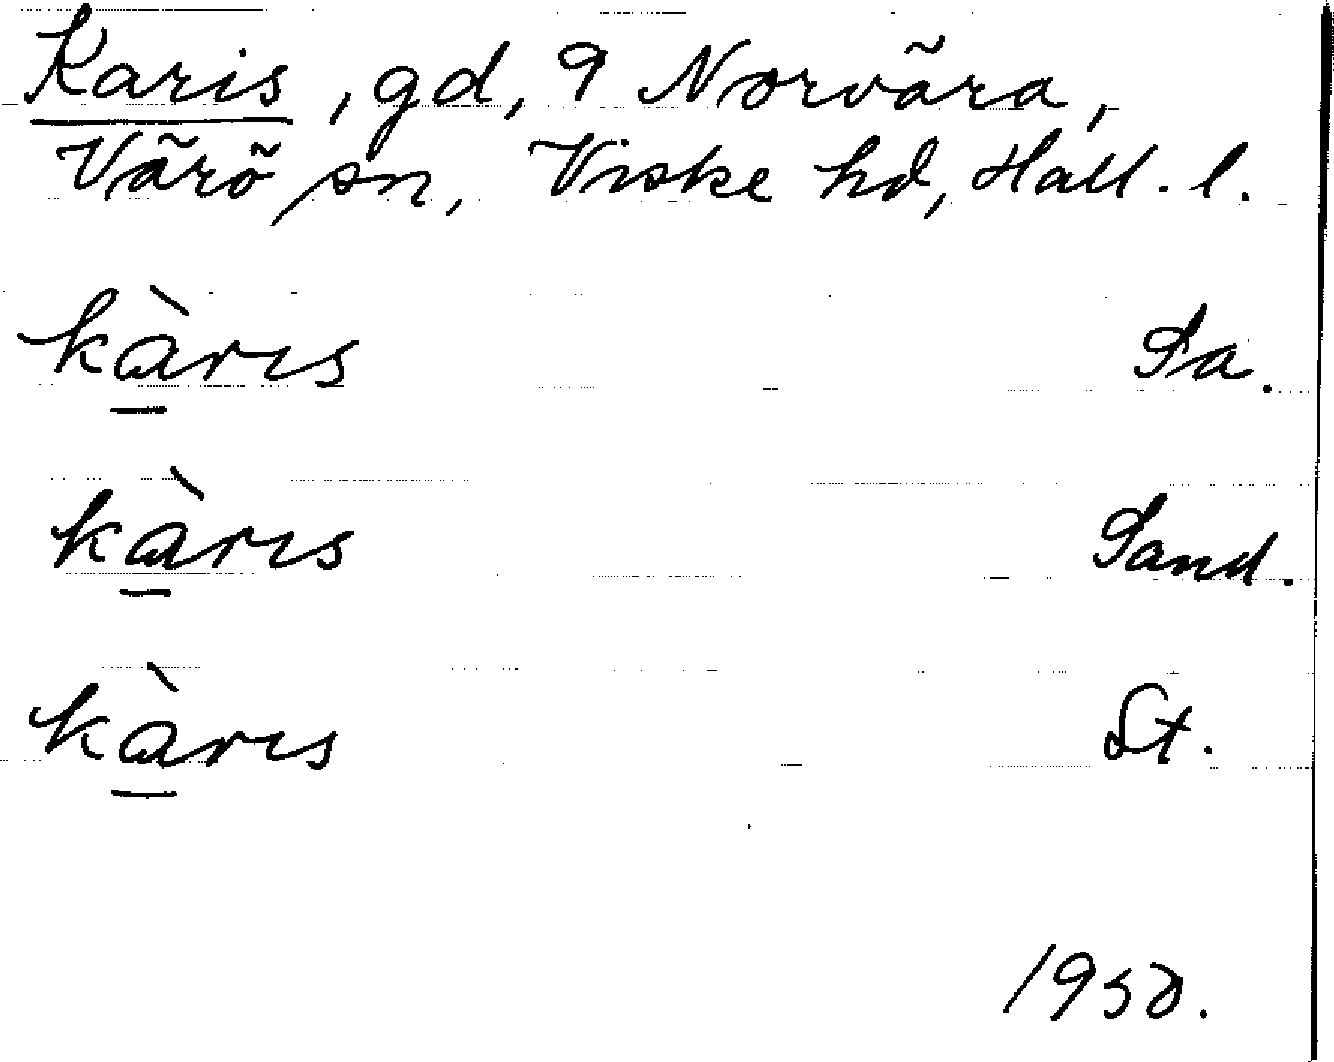 Karis, gd, 9 Norvära,
Värö sn, Viske hd, Hall. l.
kàrıs Sa.
kàrıs Sand.
kàrıs St.
1950.